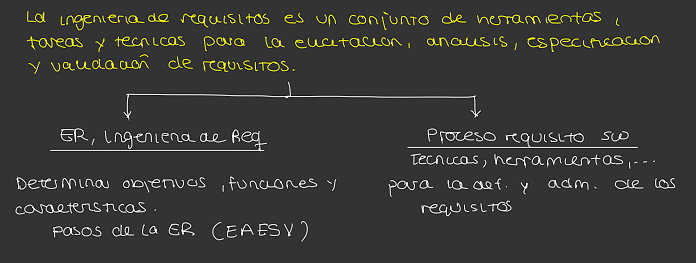 La ingenieria de requisitos es un conjunto de herramientas,
tareas y tecnicas para la elicitación, analisis, especificacion
y validación de requisitos.
ER, Ingenieria de Req
Determinar objetivos, funciones y
caracteristicas.
Pasos de la ER (EAESV)
Proceso requisito SW
Tecnicas, herramientas,...
para la def. y adm. de los
requisitos